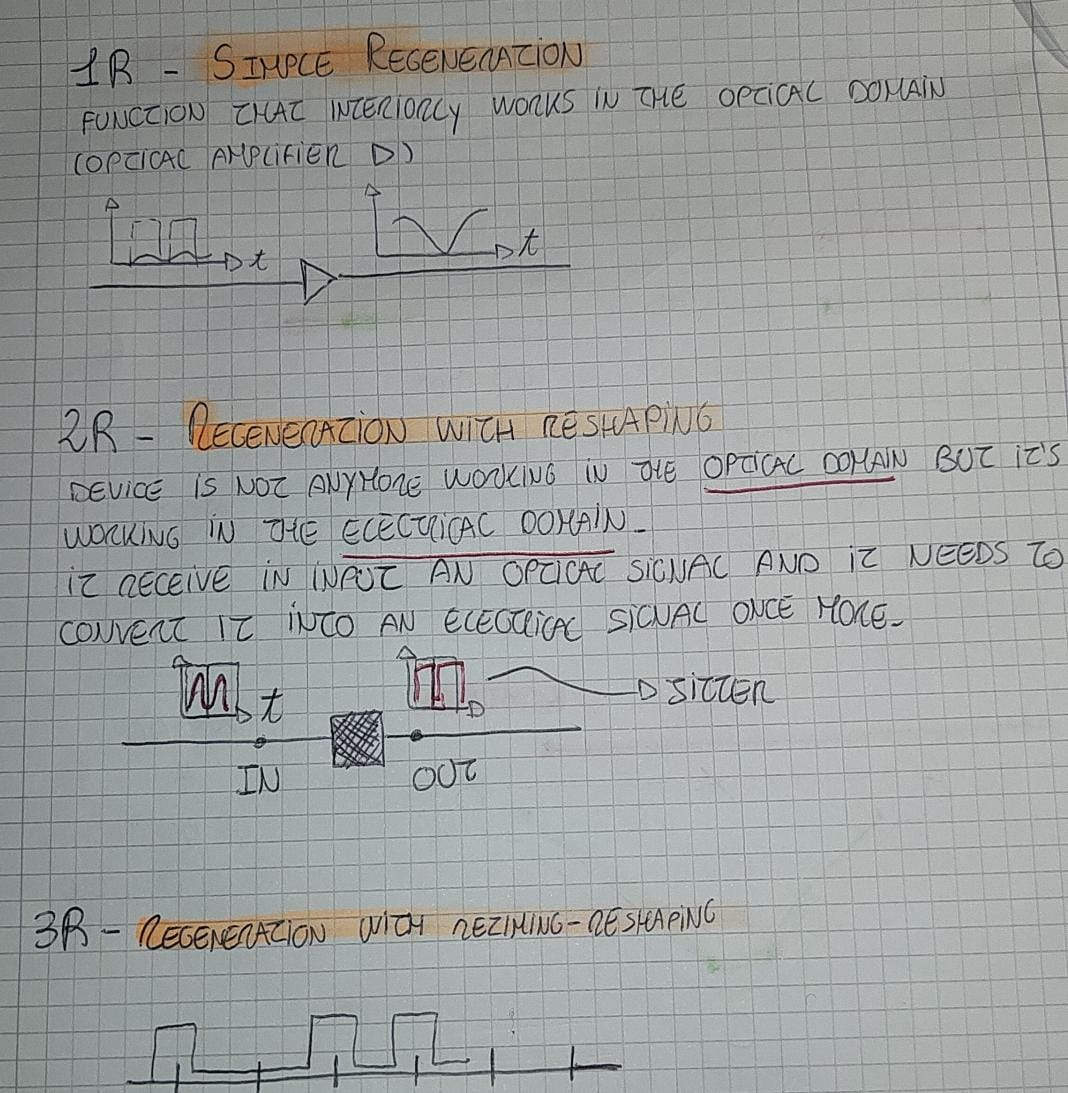 1R - SIMPLE REGENERATION
FUNCTION THAT INTERIORLY WORKS IN THE OPTICAL DOMAIN
(OPTICAL AMPLIFIER ▷)
t
t
2R - REGENERATION WITH RESHAPING
DEVICE IS NOT ANYMORE WORKING IN THE OPTICAL DOMAIN BUT IT'S
WORKING IN THE ELECTRICAL DOMAIN_
IT RECEIVE IN INPUT AN OPTICAL SIGNAL AND IT NEEDS TO
CONVERT IT INTO AN ELECTRICAL SIGNAL ONCE MORE_
t
JITTER
IN
OUT
3R - REGENERATION WITH RETIMING-RESHAPING